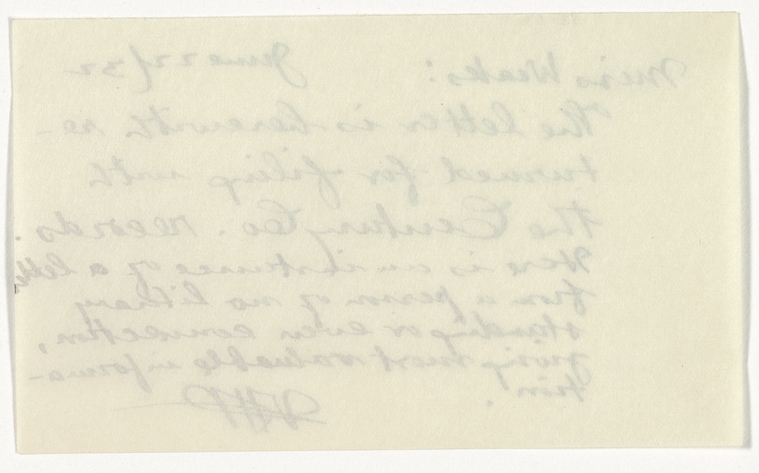 Miss Weaks: June 22/32
The letter is herewith re-
turned for filing with
the Century Co. records.
Here is an instance of a letter
from a person of no literary
standing or even connection,
giving most valuable informa-
tion.